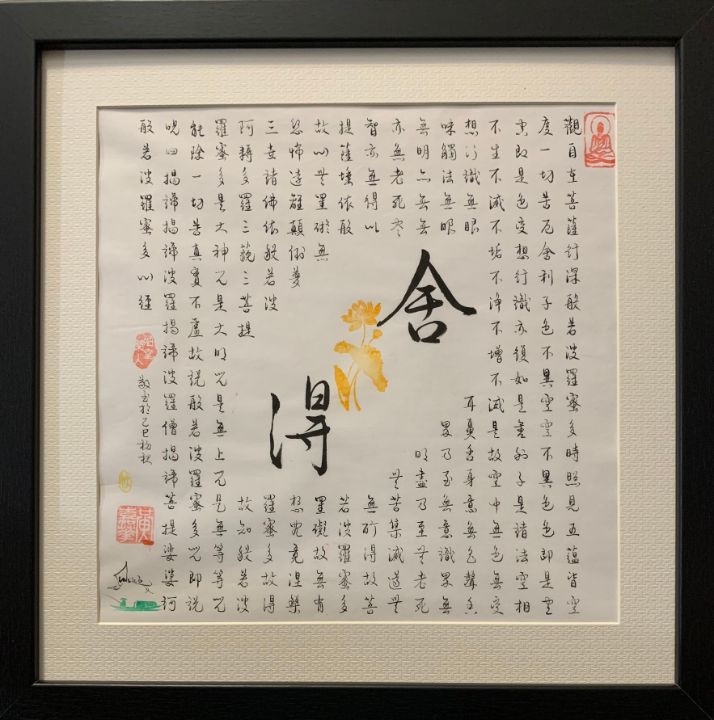 觀自在菩薩行深般若波羅蜜多時照見五蘊皆空
度一切苦厄舍利子色不異空空不異色色即是空
空即是色受想行識亦復如是舍利子是諸法空相
不生不滅不垢不淨不增不減是故空中無色無受
想行識無眼耳鼻舌身意無色聲香
味觸法無眼界乃至無意識界無
無明亦無無明盡乃至无老死
亦無老死盡无苦集滅道无
智亦無得以無所得故菩
提薩埵依般若波羅蜜多
故心无罣礙無罣礙故無有
恐怖遠離顛倒夢想究竟涅槃
三世諸佛依般若波羅蜜多故得
阿耨多羅三藐三菩提故知般若波
羅蜜多是大神咒是大明咒是無上咒是無等等咒
能除一切苦真實不虛故說般若波羅蜜多咒即說
咒曰揭諦揭諦波羅揭諦波羅僧揭諦菩提娑婆訶
般若波羅蜜多心經
舍
得
敬書於乙巳初秋